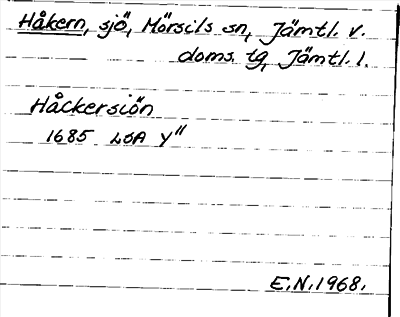 Håkern, sjö, Mörsils sn, Jämtl. v.
doms. tg, Jämtl. l.
Håckersiön
1685 LSA Y"
E.N. 1968.